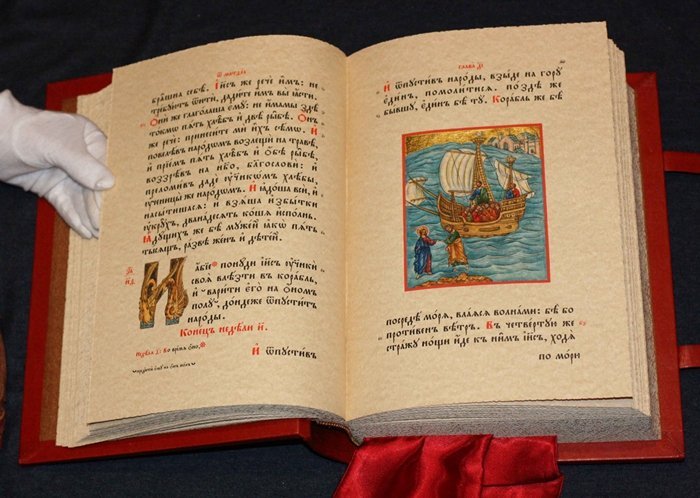 Ѿ МАТѲЕА
брашна себѣ. І҆исъ же рече и҆мъ: не
требꙋютъ ѿити, дадите и҆мъ вы ꙗсти.
Ѻ҆ни же глаголаша є҆мꙋ: не имамы здѣ
токмѡ пѧть хлѣбъ и҆ двѣ рыбѣ. Ѻ҆нъ
же рече: принесите ми и҆хъ сѣмѡ. И҆
повелѣвъ народѡмъ возлещи на травѣ,
и҆ прїемъ пѧть хлѣбъ и҆ ѻбѣ рыбѣ,
воззрѣвъ на небо, благослови: и҆
преломивъ даде ᲂу҆ченикѡмъ хлѣбы,
ᲂу҆ченицы же народѡмъ. И҆ ꙗдоша вси, и҆
насытишасѧ: и҆ взѧша и҆збытки
ᲂу҆крꙋхъ, дванадесѧть кѡша и҆сполнь.
Ꙗдꙋщихъ же бѣ мꙋжей ꙗкѡ пѧть
тысѧщъ, развѣ женъ и҆ дѣтей.
И҆ абїе понꙋди І҆исъ ᲂу҆ченики
своѧ влѣзти въ корабль,
и҆ варити є҆го на ѻ҆номъ
полꙋ, дондеже ѿпꙋститъ
народы.
Конецъ недѣли и҃.
И҆ ѿпꙋстивъ
И҆ ѿпꙋстивъ народы, взыде на горꙋ
є҆динъ, помолитисѧ. поздѣ же
бывшꙋ, є҆динъ бѣ тꙋ. Корабль же бѣ
посредѣ морѧ, влаѧсѧ волнами: бѣ бо
противенъ вѣтръ. Въ четвертꙋю же
стражꙋ нощи и҆де къ нимъ І҆исъ, ходѧ
по мори